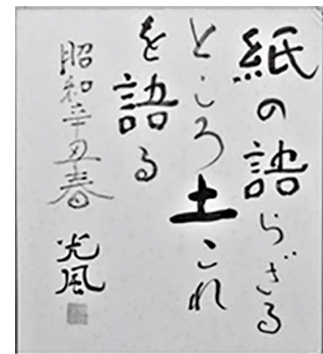 紙の語らざる
ところ土これ
を語る
昭和辛丑春
光風